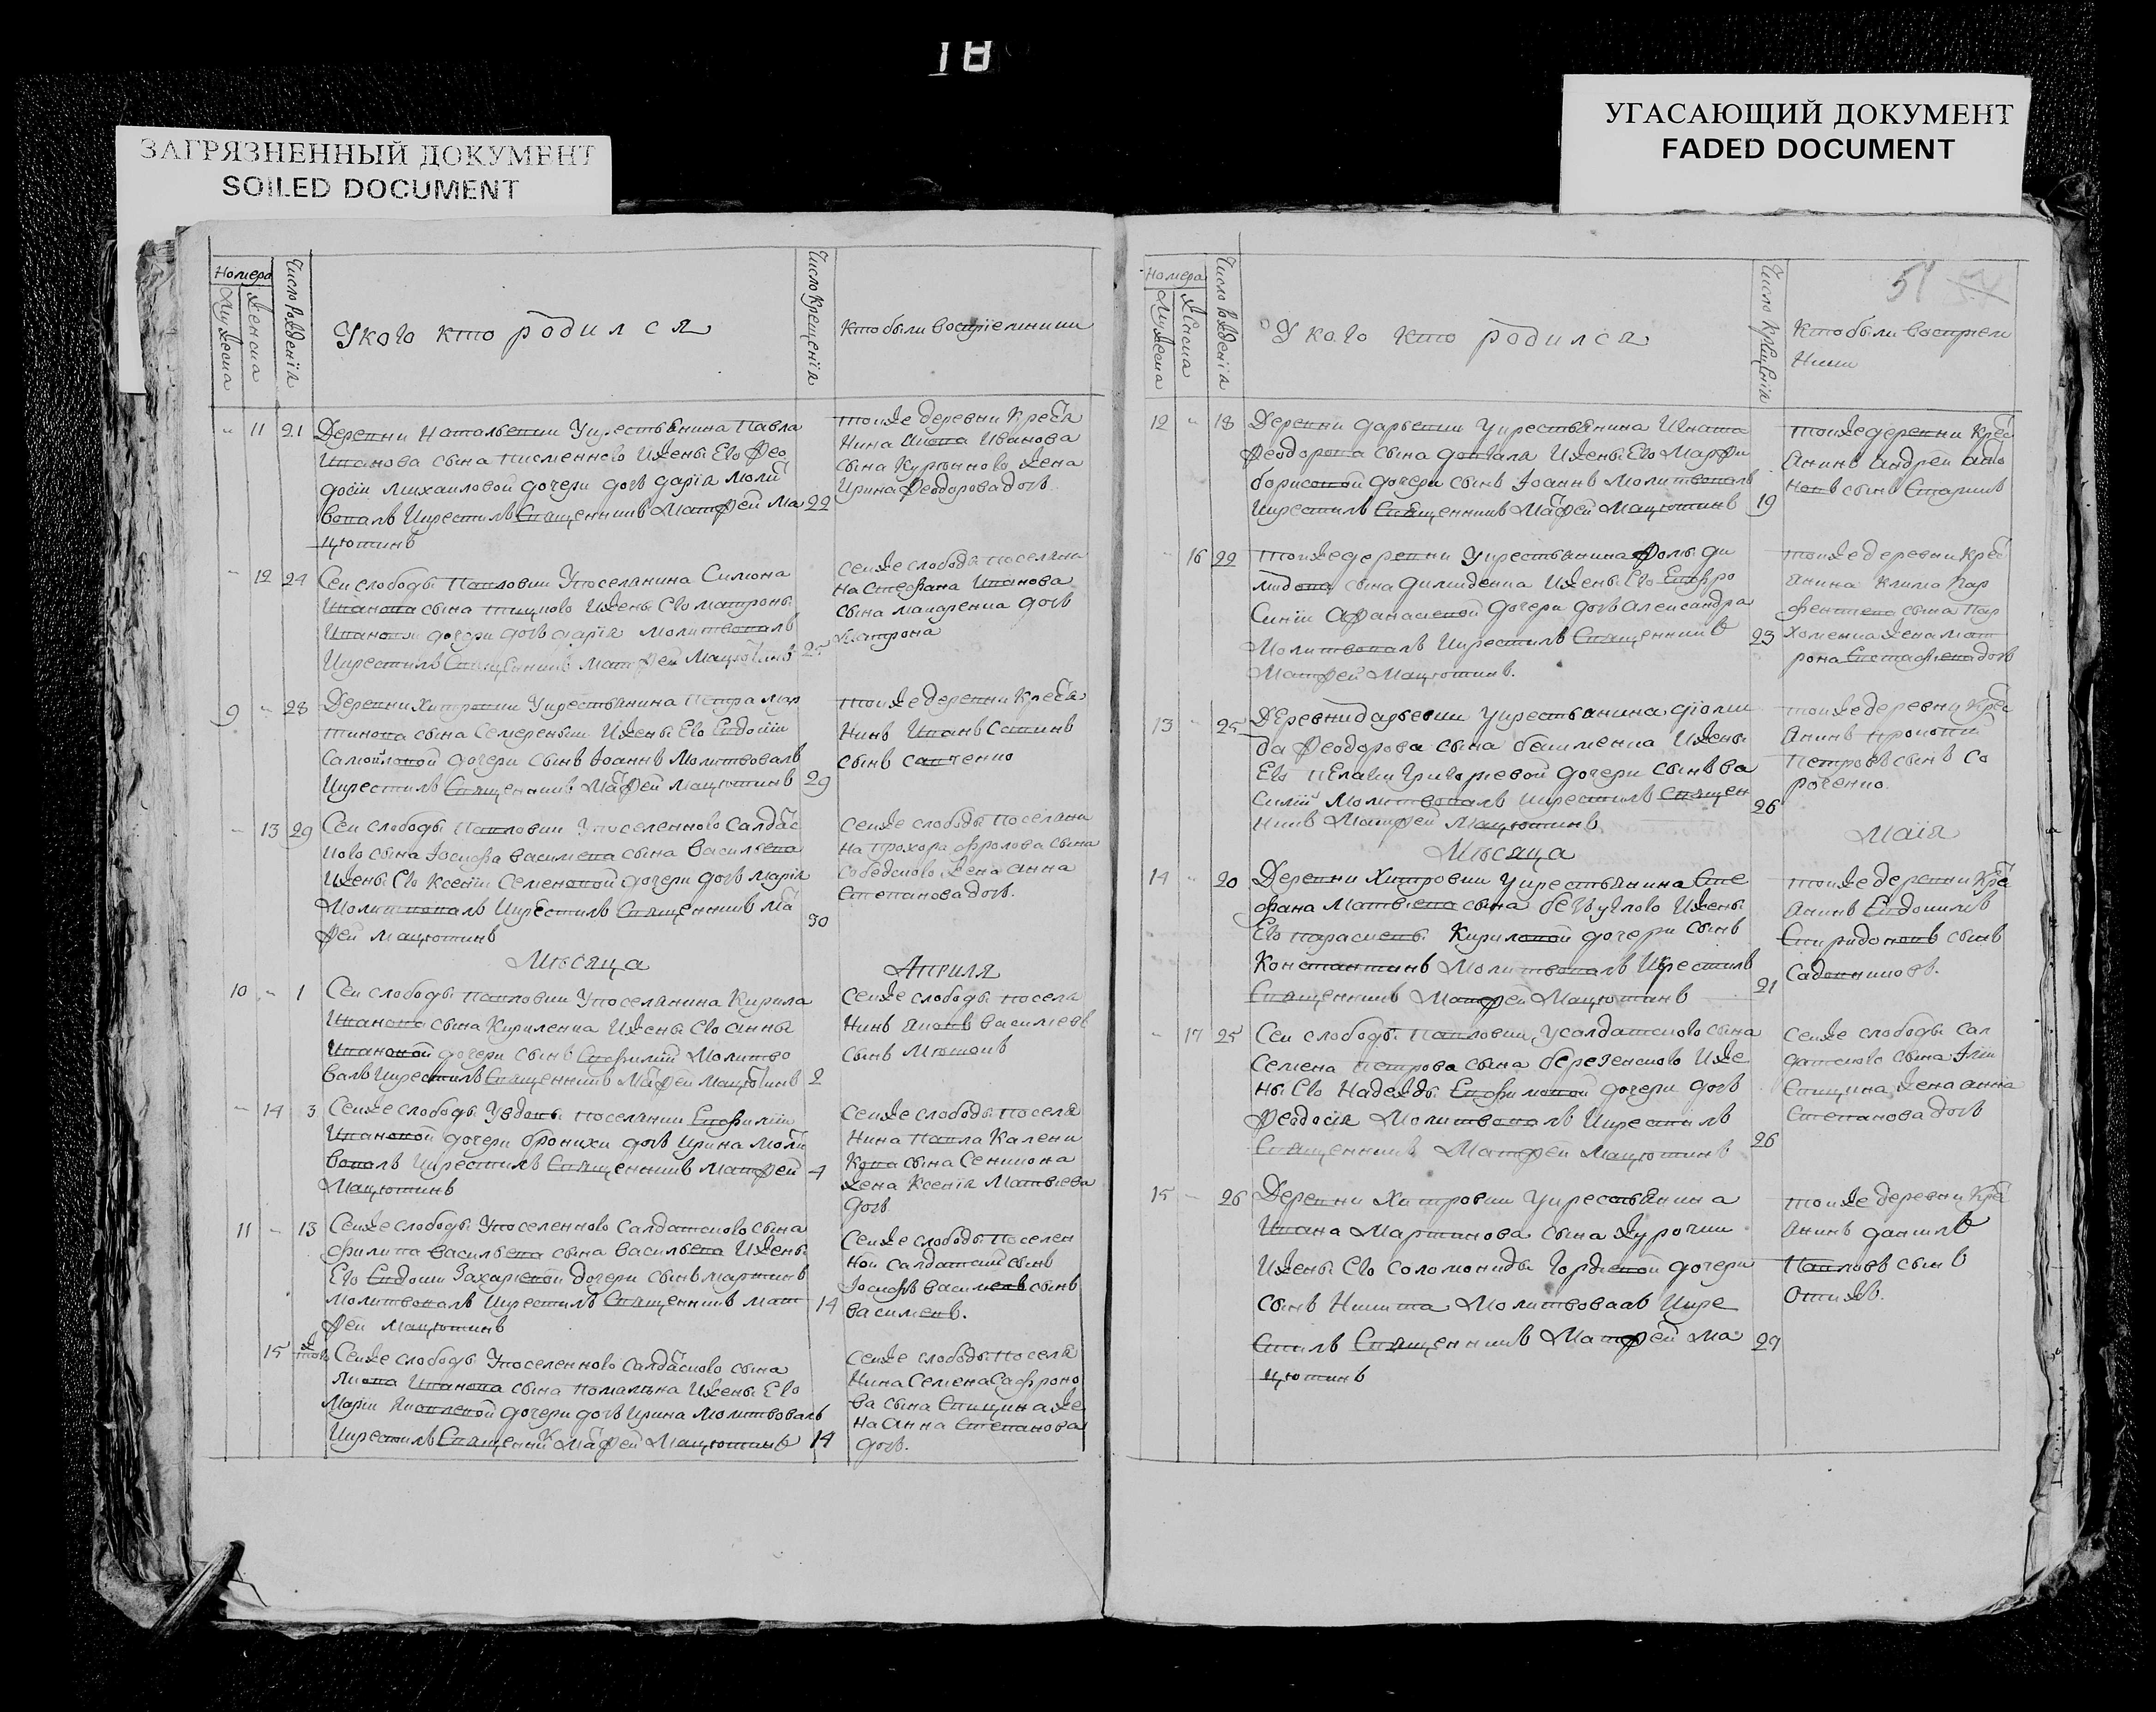 18
ЗАГРЯЗНЕННЫЙ ДОКУМЕНТ
SOILED DOCUMENT
УГАСАЮЩИЙ ДОКУМЕНТ
FADED DOCUMENT
Номера
Мужеска
Женска
Число рождения
У кого кто родился
Число крещения
Кто были восприемники
11 21 Деревни Натальевки У крестьянина Павла
Иванова сына писменного И жены Его Фео
досии Михаиловой дочери дочь дария моли
вовалъ И крестилъ Священникъ Матфей Ма 22
цютинъ
той же деревни Креся
Нина Якова Иванова
сына Курочкиново жена
Ирина Феодорова дочь
12 24 Сеи слободы Павловки У поселянина Симона
Иванова сына И жены Его матроны
Ивановой дочери дочь дария молитвовалъ
И крестилъ Священникъ Матфей Мацютинъ 25
сеи же слободы поселяни
на Стефана Иванова
сына дочь
Матрона
9 28 Деревни Хитровки У крестьянина Петра Мар
тинова сына Семереньки И жены Его Евдокии
Самойловой дочери сынъ Иоаннъ Молитвовалъ
И крестилъ Священникъ Мафей Мацютинъ 29
той же деревни Креся
Нинъ Иванъ
сынъ Савченко
13 29 Сеи слободы Павловки У поселенного Салдас
кого сына Иосифа Василиева сына Васильева
И жены Его Ксении Семеновой дочери дочь Мария
Молитвовалъ И крестилъ Священникъ Ма 30
фей Мацютинъ
сеи же слободы поселяни
на Прохора Фролова сына
жена Анна
Степанова дочь.
Месяца Априля
10 1 Сеи слободы Павловки У поселянина Кирила
Иванова сына Кириленка И жены Его Анны
Ивановой дочери сынъ Молитво
валъ И крестилъ Священникъ Мафей Мацютинъ 2
сеи же слободы поселя
Нинъ Яковъ Василиевъ
сынъ
14 3 Сеи же слободы У вдовы поселянки
Ивановой дочери дочь Ирина Моли
вовалъ И крестилъ Священникъ Матфей 4
Мацютинъ
сеи же слободы поселя
Нина Павла Калени
кова сына Сеникова
жена Ксения Матвиева
дочь
11 13 Сеи же слободы У поселенного Салдатского сына
Филипа Васильева сына Васильева И жены
Его Евдокии Захариевой дочери сынъ Мартинъ
Молитвовалъ И крестилъ Священникъ Мат 14
фей Мацютинъ
сеи же слободы поселен
ной Салдатский сынъ
Иосифъ Василиевъ сынъ
Василиевъ.
15 Сеи же слободы У поселенного Салдаского сына
Якова Иванова сына И жены Его
Марии Яковлевой дочери дочь Ирина Молитвовалъ
И крестилъ Священникъ Мафей Мацютинъ 14
сеи же слободы поселя
Нина Семена Сафроно
ва сына Спицина же
на Анна Степанова
дочь.
51
Номера
Мужеска
Женска
Число рождения
У кого кто родился
Число крещения
Кто были восприем
ники
12 18 Деревни Дарьевки У крестьянина Игната
Феодорова сына И жены Его Марфи
Борисовой дочери сынъ Иоаннъ Молитвовалъ
И крестилъ Священникъ Мафей Мацютинъ 19
той же деревни Крес
Янинъ Андрей
сынъ
16 22 той же деревни У крестьянина Фомы Ди
мидова сына Димиденка И жены Его Евфро
синии Афанасиевой дочери дочь Александра
Молитвовалъ И крестилъ Священникъ 23
Матфей Мацютинъ.
той же деревни крес
янина Клима Пар
фентиева сына Пар
хоменка жена мат
рона Евстафиева дочь
13 25 Деревни Дарьевки У крестьянина
да Феодорова сына И жены
Его Пелагии Григориевой дочери сынъ Ва
силий Молитвовалъ И крестилъ Священ 26
никъ Матфей Мацютинъ
той же деревни Крес
янинъ Прокопий
Петровъ сынъ Со
роченко.
Месяца Маия
14 20 Деревни Хитровки У крестьянина Сте
фана Матвиева сына Безуглово И жены
Его Параскевы Кириловой дочери сынъ
Константинъ Молитвовалъ И крестилъ
Священникъ Матфей Мацютинъ 21
той же деревни Кре
янинъ Евдокимъ
Спиридоновъ сынъ
Садовниковъ.
17 25 Сеи слободы Павловки, У салдатского сына
Семена Петрова сына Березенского И же
ны Его Надежды дочери дочь
Феодосия Молитвовалъ И крестилъ
Священникъ Матфей Мацютинъ 26
сеи же слободы Сал
датского сына Илии
Спицина жена Анна
Степанова дочь
15 26 Деревни Хитровки У крестьянина
Ивана Мартинова сына Курочки
И жены Его Соломониды Гордиевой дочери
сынъ Никита Молитвовалъ И кре
стилъ Священникъ Матфей Ма 27
цютинъ
той же деревни Кре
янинъ Даниилъ
Павловъ сынъ